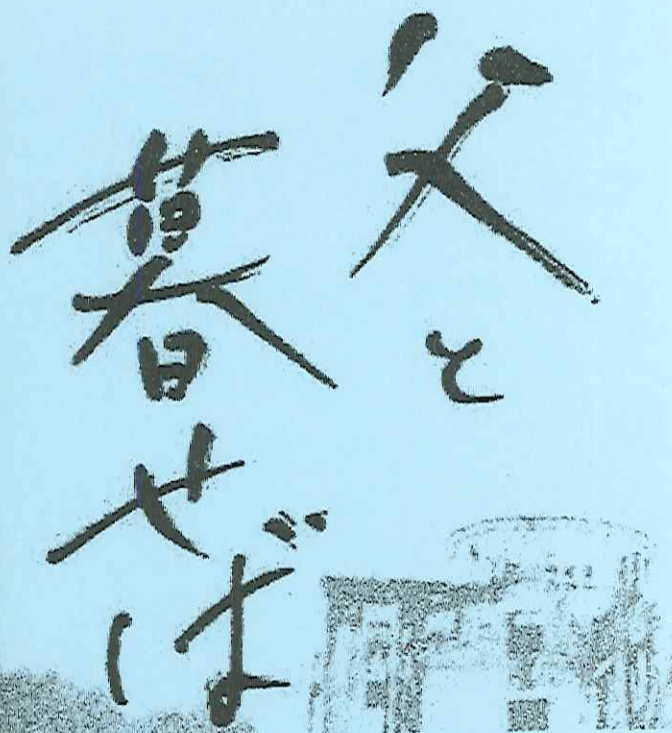 父と
暮せば